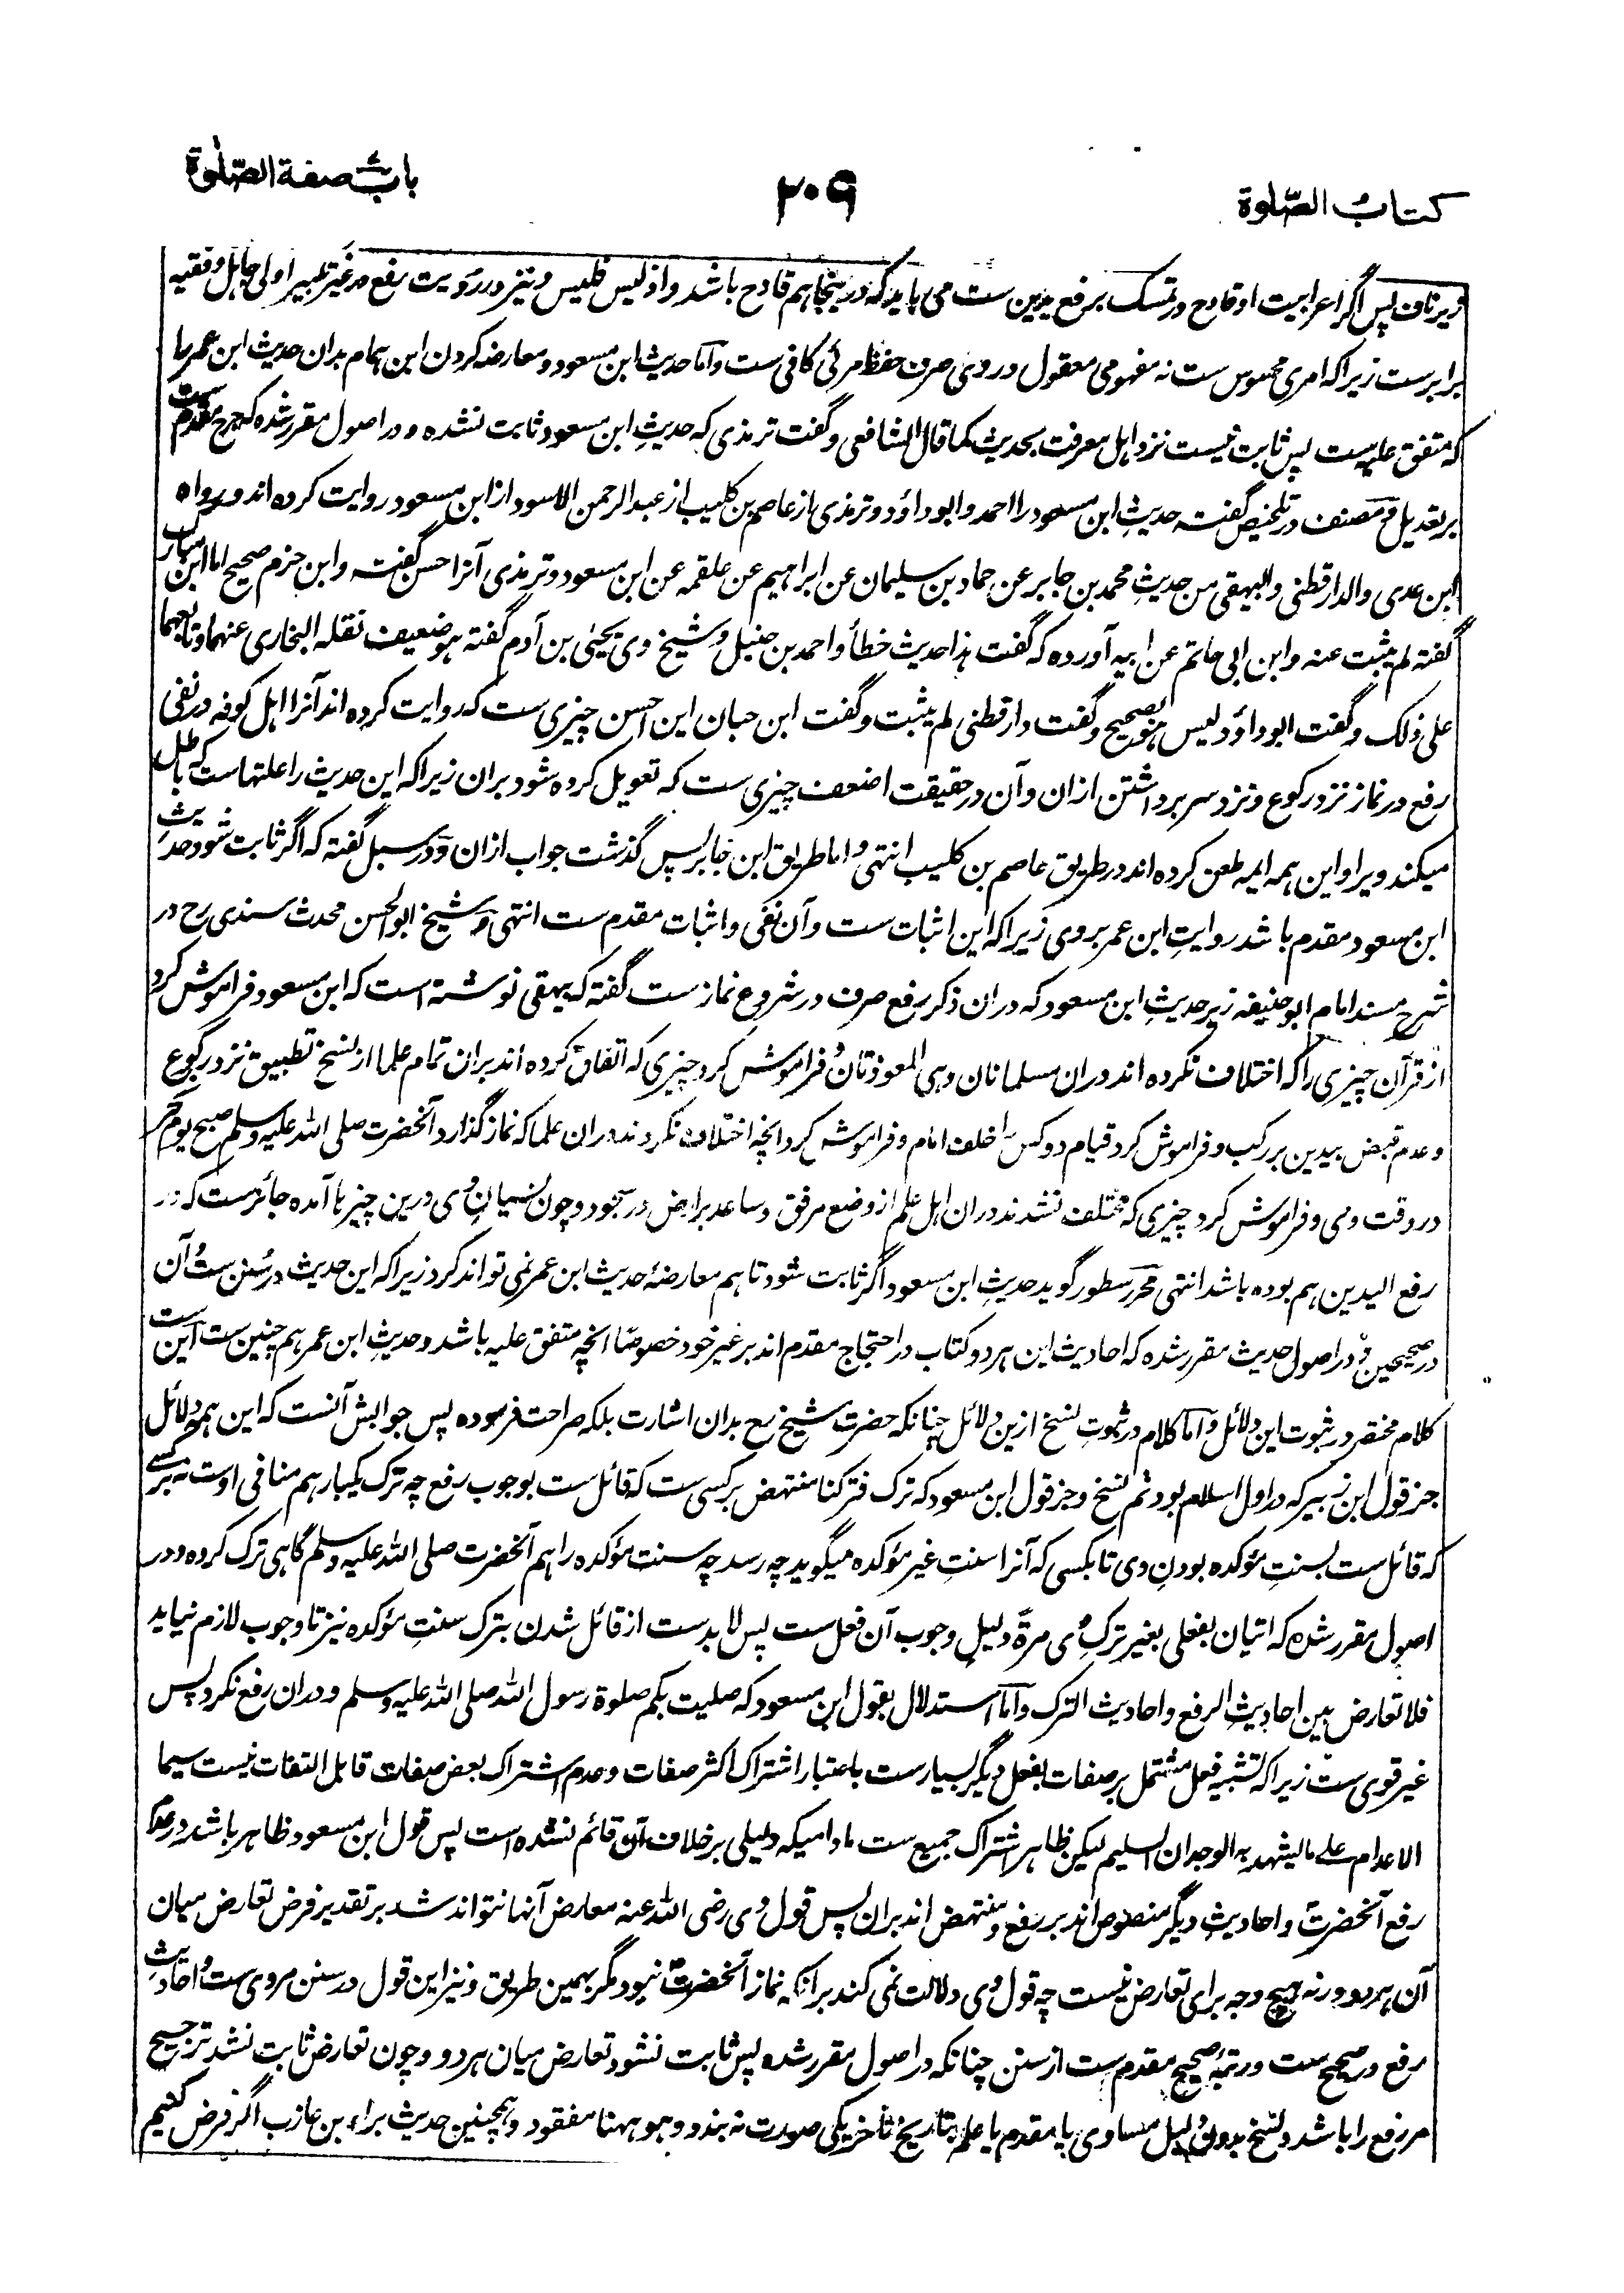 کتاب الصّلوة
۲۰۹
باب صفة الصّلوة
پس اگر اعرابیت او قادح در تمسک برفع یدین ست می باید که در ینجا هم قادح باشد و اذ لیس فلیس و نیز در رویت رفع مر غیر تکبیر اولی جاهل و فقیه
برابر ست زیرا که امری محسوس ست نه مفهومی معقول و در وی صرف حفظ مرئی کافی ست و اما حدیث ابن مسعود و معارضه کردن ابن همام بدان حدیث ابن عمر را
که متفق علیه ست پس ثابت نیست نزد اهل معرفت بحدیث کما قال الشافعی و گفت ترمذی که حدیث ابن مسعود ثابت نشده و در اصول مقرر شده که جرح مقدم ست
بر تعدیل و مصنف در تلخیص گفته حدیث ابن مسعود را احمد و ابو داؤد و ترمذی از عاصم بن کلیب از عبد الرحمن الاسود از ابن مسعود روایت کرده اند و رواه
ابن عدی والدارقطنی والبیهقی من حدیث محمد بن جابر عن حماد بن سلیمان عن ابراهیم عن علقمه عن ابن مسعود و ترمذی آنرا حسن گفته و ابن حزم صحیح اما ابن مبارک
گفته لم یثبت عنه و ابن ابی حاتم عن ابیه آورده که گفت هذا حدیث خطأ و احمد بن حنبل و شیخ وی یحیی بن آدم گفته هو ضعیف نقله البخاری عنهما و تابعهما
علی ذلک و گفت ابو داؤد لیس هو بصحیح و گفت دارقطنی لم یثبت و گفت ابن حبان این احسن چیزی ست که روایت کرده اند آنرا اهل کوفه در نفی
رفع در نماز نزد رکوع و نزد سر برداشتن ازان و آن در حقیقت اضعف چیزی ست که تعویل کرده شود بران زیرا که این حدیث را علتهاست که باطل
میکند ویرا و این همه ایمه طعن کرده اند در طریق عاصم بن کلیب انتهی و اما طریق ابن جابر پس گذشت جواب ازان و در سبل گفته که اگر ثابت شود حدیث
ابن مسعود مقدم باشد روایت ابن عمر بر وی زیرا که این اثبات ست و آن نفی و اثبات مقدم ست انتهی و شیخ ابو الحسن محدث سندی رح در
شرح مسند امام ابو حنیفه زیر حدیث ابن مسعود که دران ذکر رفع صرف در شروع نماز ست گفته که بیهقی نوشته است که ابن مسعود فراموش کرد
از قرآن چیزی را که اختلاف نکرده اند دران مسلمانان و هی المعوذتان و فراموش کرد چیزی که اتفاق کرده اند بران تمام علما از نسخ تطبیق نزد رکوع
و عدم قبض بیدین بر رکب و فراموش کرد قیام دو کس را خلف امام و فراموش کرد انچه اختلاف نکردند دران علما که نماز گذارد آنحضرت صلی الله علیه وسلم صبح یوم نحر
در وقت وی و فراموش کرد چیزی که مختلف نشدند دران اهل علم از وضع مرفق و ساعد بر ارض در سجود و چون نسیان وی درین چیزها آمده جائز ست که در
رفع الیدین هم بوده باشد انتهی محرر سطور گوید حدیث ابن مسعود اگر ثابت شود تا هم معارضۀ حدیث ابن عمر نمی تواند کرد زیرا که این حدیث در سنن ست و آن
در صحیحین و در اصول حدیث مقرر شده که احادیث این هر دو کتاب در احتجاج مقدم اند بر غیر خود خصوصًا انچه متفق علیه باشد و حدیث ابن عمر هم چنین ست این ست
کلام مختصر در ثبوت این دلائل و اما کلام در ثبوت نسخ ازین دلائل چنانکه حضرت شیخ رح بدان اشارت بلکه صراحت فرموده پس جوابش آنست که این همه دلائل
جز قول ابن زبیر که در اول اسلام بود ثم نسخ و جز قول ابن مسعود که ترک فترکنا منتهض بر کسی ست که قائل ست بوجوب رفع چه ترک یکبار هم منافی اوست نه بر کسی
که قائل ست بسنت مؤکده بودن وی تا بکسی که آنرا سنت غیر مؤکده میگوید چه رسد چه سنت مؤکده را هم آنحضرت صلی الله علیه وسلم گاهی ترک کرده و در
اصول مقرر شده که اتیان بفعلی بغیر ترک وی مرةً دلیل وجوب آن فعل ست پس لا بد ست از قائل شدن بترک سنت مؤکده نیز تا وجوب لازم نیاید
فلا تعارض بین احادیث الرفع و احادیث الترک و اما استدلال بقول ابن مسعود که صلیت بکم صلوة رسول الله صلی الله علیه وسلم و دران رفع نکرد پس
غیر قوی ست زیرا که تشبیه فعل مشتمل بر صفات بفعل دیگر بسیار ست باعتبار اشتراک اکثر صفات و عدم اشتراک بعض صفات قابل التفات نیست سیما
الاعدام علی ما یشهد به الوجدان السلیم لیکن ظاهر اشتراک جمیع ست مادامیکه دلیلی بر خلاف آن قائم نشده است پس قول ابن مسعود ظاهر باشد در عدم
رفع آنحضرت و احادیث دیگر منصوص اند بر رفع و منتهض اند بران پس قول وی رضی الله عنه معارض آنها نتواند شد بر تقدیر فرض تعارض میان
آن هر دو ورنه هیچ وجه برای تعارض نیست چه قول وی دلالت نمی کند برانکه نماز آنحضرت نبود مگر بهمین طریق و نیز این قول در سنن مروی ست و احادیث
رفع در صحیح ست و رتبۀ صحیح مقدم ست از سنن چنانکه در اصول مقرر شده پس ثابت نشود تعارض میان هر دو و چون تعارض ثابت نشد ترجیح
مر رفع را باشد و نسخ بدون دلیل مساوی یا مقدم یا علم بتاریخ تأخر یکی صورت نه بندد و هو ههنا مفقود و همچنین حدیث براء بن عازب اگر فرض کنیم